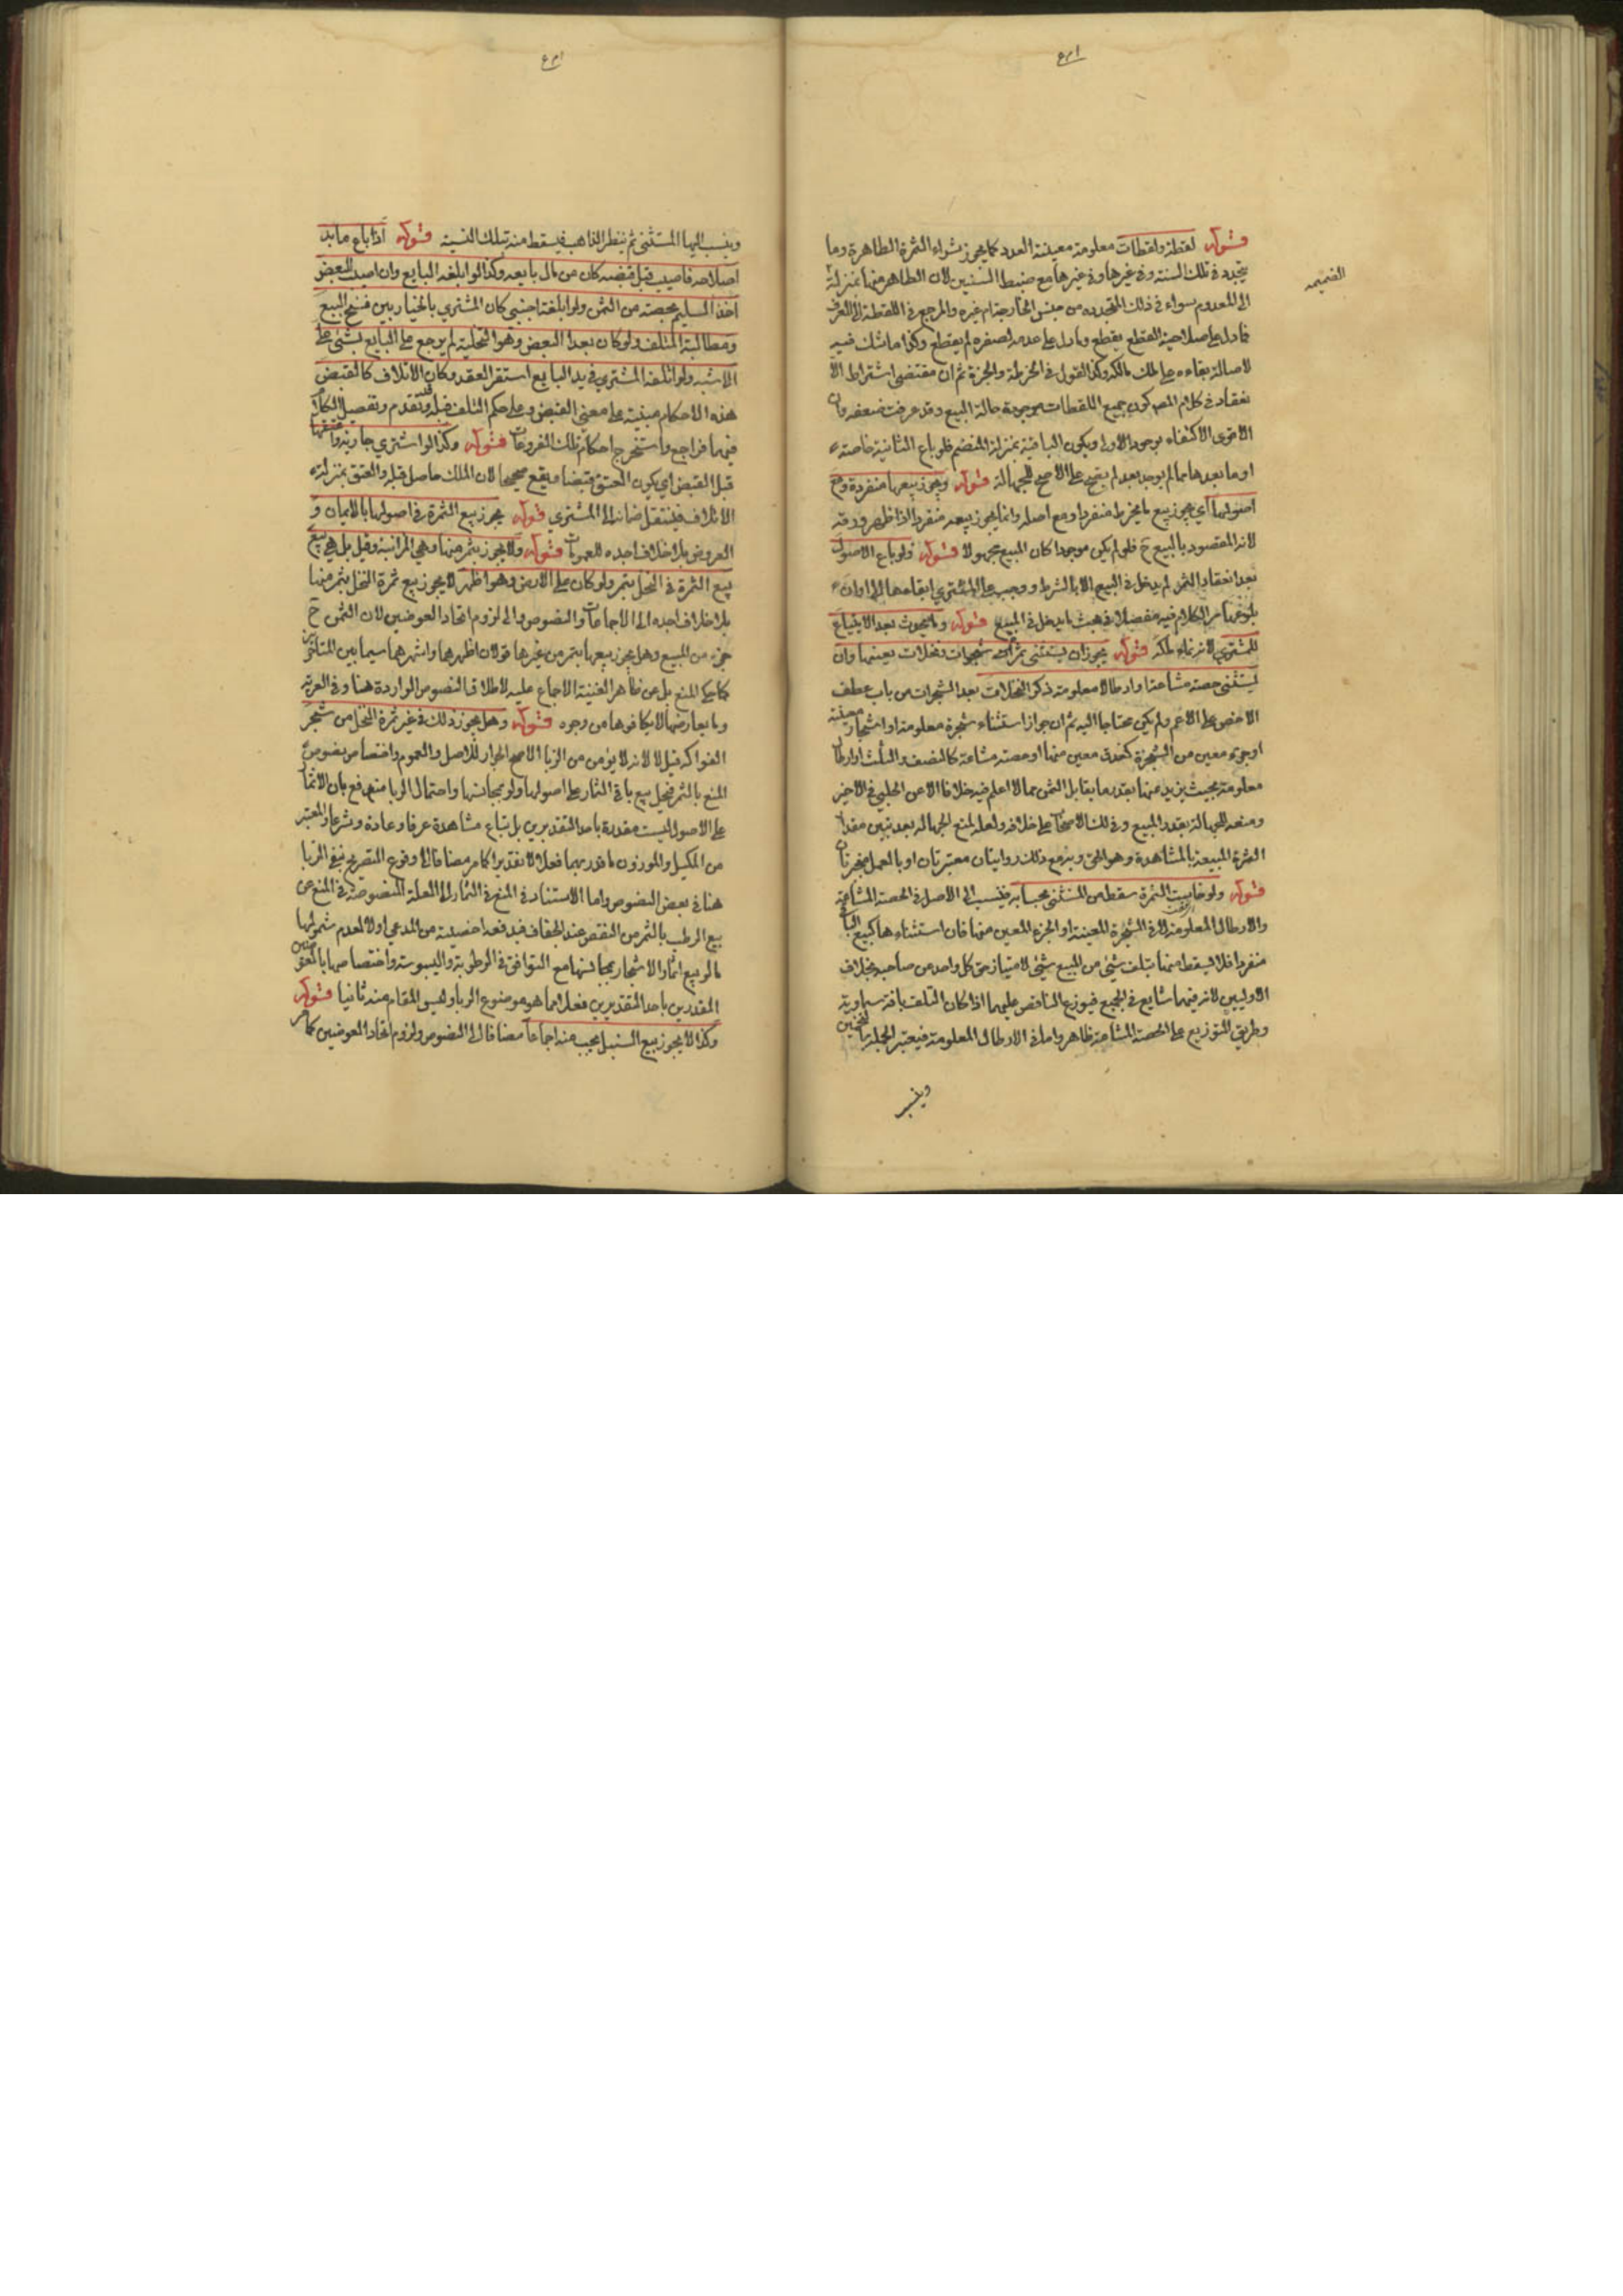 قوله لقطة ولقطات معلومة معينة العدد كما يجوز شراء الثمرة الظاهرة وما
يتجدد في تلك السنة وفي غيرها مع ضبط السنين لان الظاهر منها بمنزلة
الضميمه
الى المعدوم سواء في ذلك المتجدد من جنس الخارج ام غيره والمرجع في اللقطة الى العرف
فما دل على صلاحيته للقطع يقطع وما دل على عدمه لصغره لم يقطع وكذا ما شك فيه
لاصالة بقاءه على ملك مالكه وكذا القول في الخرطة والجزة ثم ان مقتضى اشتراط الا
نعقاد في كلام المص كون جميع اللقطات موجودة حالة البيع وقد عرفت ضعفه وان
الاقوى الاكتفاء بوجود الاولى ويكون الباقية بمنزلة المنضم فلو باع الثانية خاصة
او ما بعدها مما لم يوجد بعد لم يصح على الاصح للجهالة قوله ويجوز بيعها منفردة ومع
اصولها اي يجوز بيع ما يخرط منفردا ومع اصله وانما يجوز بيعه منفردا اذا ظهر ورقه
لانه المقصود بالبيع ح فلو لم يكن موجودا كان المبيع مجهولا قوله ولو باع الاصول
بعد انعقاد الثمر لم يدخل في البيع الا بالشرط ووجب على المشتري ابقاءها الى اوان
بلوغها مر الكلام فيه مفصلا في بحث ما يدخل في المبيع قوله وما يحدث بعد الابتياع
للمشتري لانه نماء ملكه قوله يجوز ان يستثنى ثمرات شجرات ونخلات بعينها وان
يستثنى حصة مشاعة او ارطالا معلومة ذكر النخلات بعد الشجرات من باب عطف
الاخص على الاعم ولم يكن محتاجا اليه ثم ان جواز استثناء شجرة معلومة او اشجار معينة
او جزء معين من الشجرة كعذق معين منها او حصة مشاعة كالنصف والثلث او ارطال
معلومة بحيث يزيد عنها بقدر ما يقابل الثمن مما لا اعلم فيه خلافا الا عن الحلبي في الاخير
ومنعه للجهالة بقدر المبيع وفي لك الاصحاب على خلافه ولعله لمنع الجهالة بعد تبين مقدار
الثمرة المبيعة بالمشاهدة وهو الحق وبه مع ذلك روايتان معتبرتان او بالعمل منجبرتان
قوله ولو خاست الثمرة سقط من المستثنى بحسابه فينسب الى الاصل في الحصة المشاعة
والارطال المعلومة لا في الشجرة المعينة او الجزء المعين منها فان استثناءها كبيع الباقي
منفردا فلا يسقط منها بتلف شئ من المبيع شئ لامتياز حق كل واحد من صاحبه بخلاف
الاوليين لانه فيهما شايع في الجميع فيوزع الناقص عليهما اذا كان التلف بآفة سماوية
وطريق التوزيع على الحصة المشاعة ظاهر واما في الارطال المعلومة فيعتبر الجملة بالتخمين
وينسب
وينسب اليها المستثنى ثم ينظر الذاهب فيسقط منه بتلك النسبة قوله اذا باع ما بد
اصلاحه فاصيب قبل قبضه كان من مال بايعه وكذا لو اتلفه البايع وان اصيب البعض
اخذ السليم بحصته من الثمن ولو اتلفه اجنبي كان المشتري بالخيار بين فسخ البيع
ومطالبة المتلف ولو كان بعد القبض وهو التخلية لم يرجع على البايع بشئ على
الاشبه ولو اتلفه المشتري في يد البايع استقر العقد وكان الاتلاف كالقبض
هذه الاحكام مبنية على معنى القبض وعلى حكم التلف قبله وقد تقدم وتفصيل الكلام
فيها فراجع واستخرج احكام تلك الفروعات قوله وكذا لو اشترى جارية واعتقها
قبل القبض اي يكون العتق قبضا ويقع صحيحا لان الملك حاصل قبله والعتق بمنزلة
الاتلاف فينتقل ضمانه الى المشتري قوله يجوز بيع الثمرة في اصولها بالاثمان و
العروض بلا خلاف اجده للعمومات قوله ولا يجوز بثمر منها وهي المزابنة وقيل بل هي بيع
بيع الثمرة في النخل بتمر ولو كان على الارض وهو اظهر لا يجوز بيع ثمرة النخل بثمر منها
بلا خلاف اجده الى الاجماعات والنصوص والى لزوم اتحاد العوضين لان الثمن ح
جزء من المبيع وهل يجوز بيعها بتمر من غيرها قولان اظهرهما واشهرهما سيما بين المتاخرين
كما حكي المنع بل عن ظاهر الغنية الاجماع عليه لاطلاق النصوص الواردة هنا وفي العرية
وما يعارضها لا يكافوها من وجوه قوله وهل يجوز ذلك في غير ثمرة النخل من شجر
الفواكه قيل لا لانه لا يؤمن من الربا الاصح الجواز للاصل والعموم واختصاص نصوص
المنع بالثمر فيحل بيع باقي الثمار على اصولها ولو بمجانسها واحتمال الربا مندفع بان الاثمار
على الاصول ليست مقدرة باحد التقديرين بل تباع مشاهدة عرفا وعادة وشرعا والمعتبر
من المكيل والموزون ما قدر بهما فعلا لا تقديرا كما مر مضافا الى وقوع التصريح بنفي الربا
هنا في بعض النصوص واما الاستناد في المنع في الثمار الى العلة المنصوصة في المنع عن
بيع الرطب بالثمر من النقص عند الجفاف فيدفعه اخصيته من المدعي اولا لعدم شمولها
ما لو بيع اثمار الاشجار بمجانسها مع التوافق في الرطوبة واليبوسة واختصاصها بالعوضين
المقدرين باحد التقديرين فعلا كما هو موضوع الربا وليس المقام منه ثانيا قوله
وكذا لا يجوز بيع السنبل بحب منه اجماعا مضافا الى النصوص ولزوم اتحاد العوضين كما مر